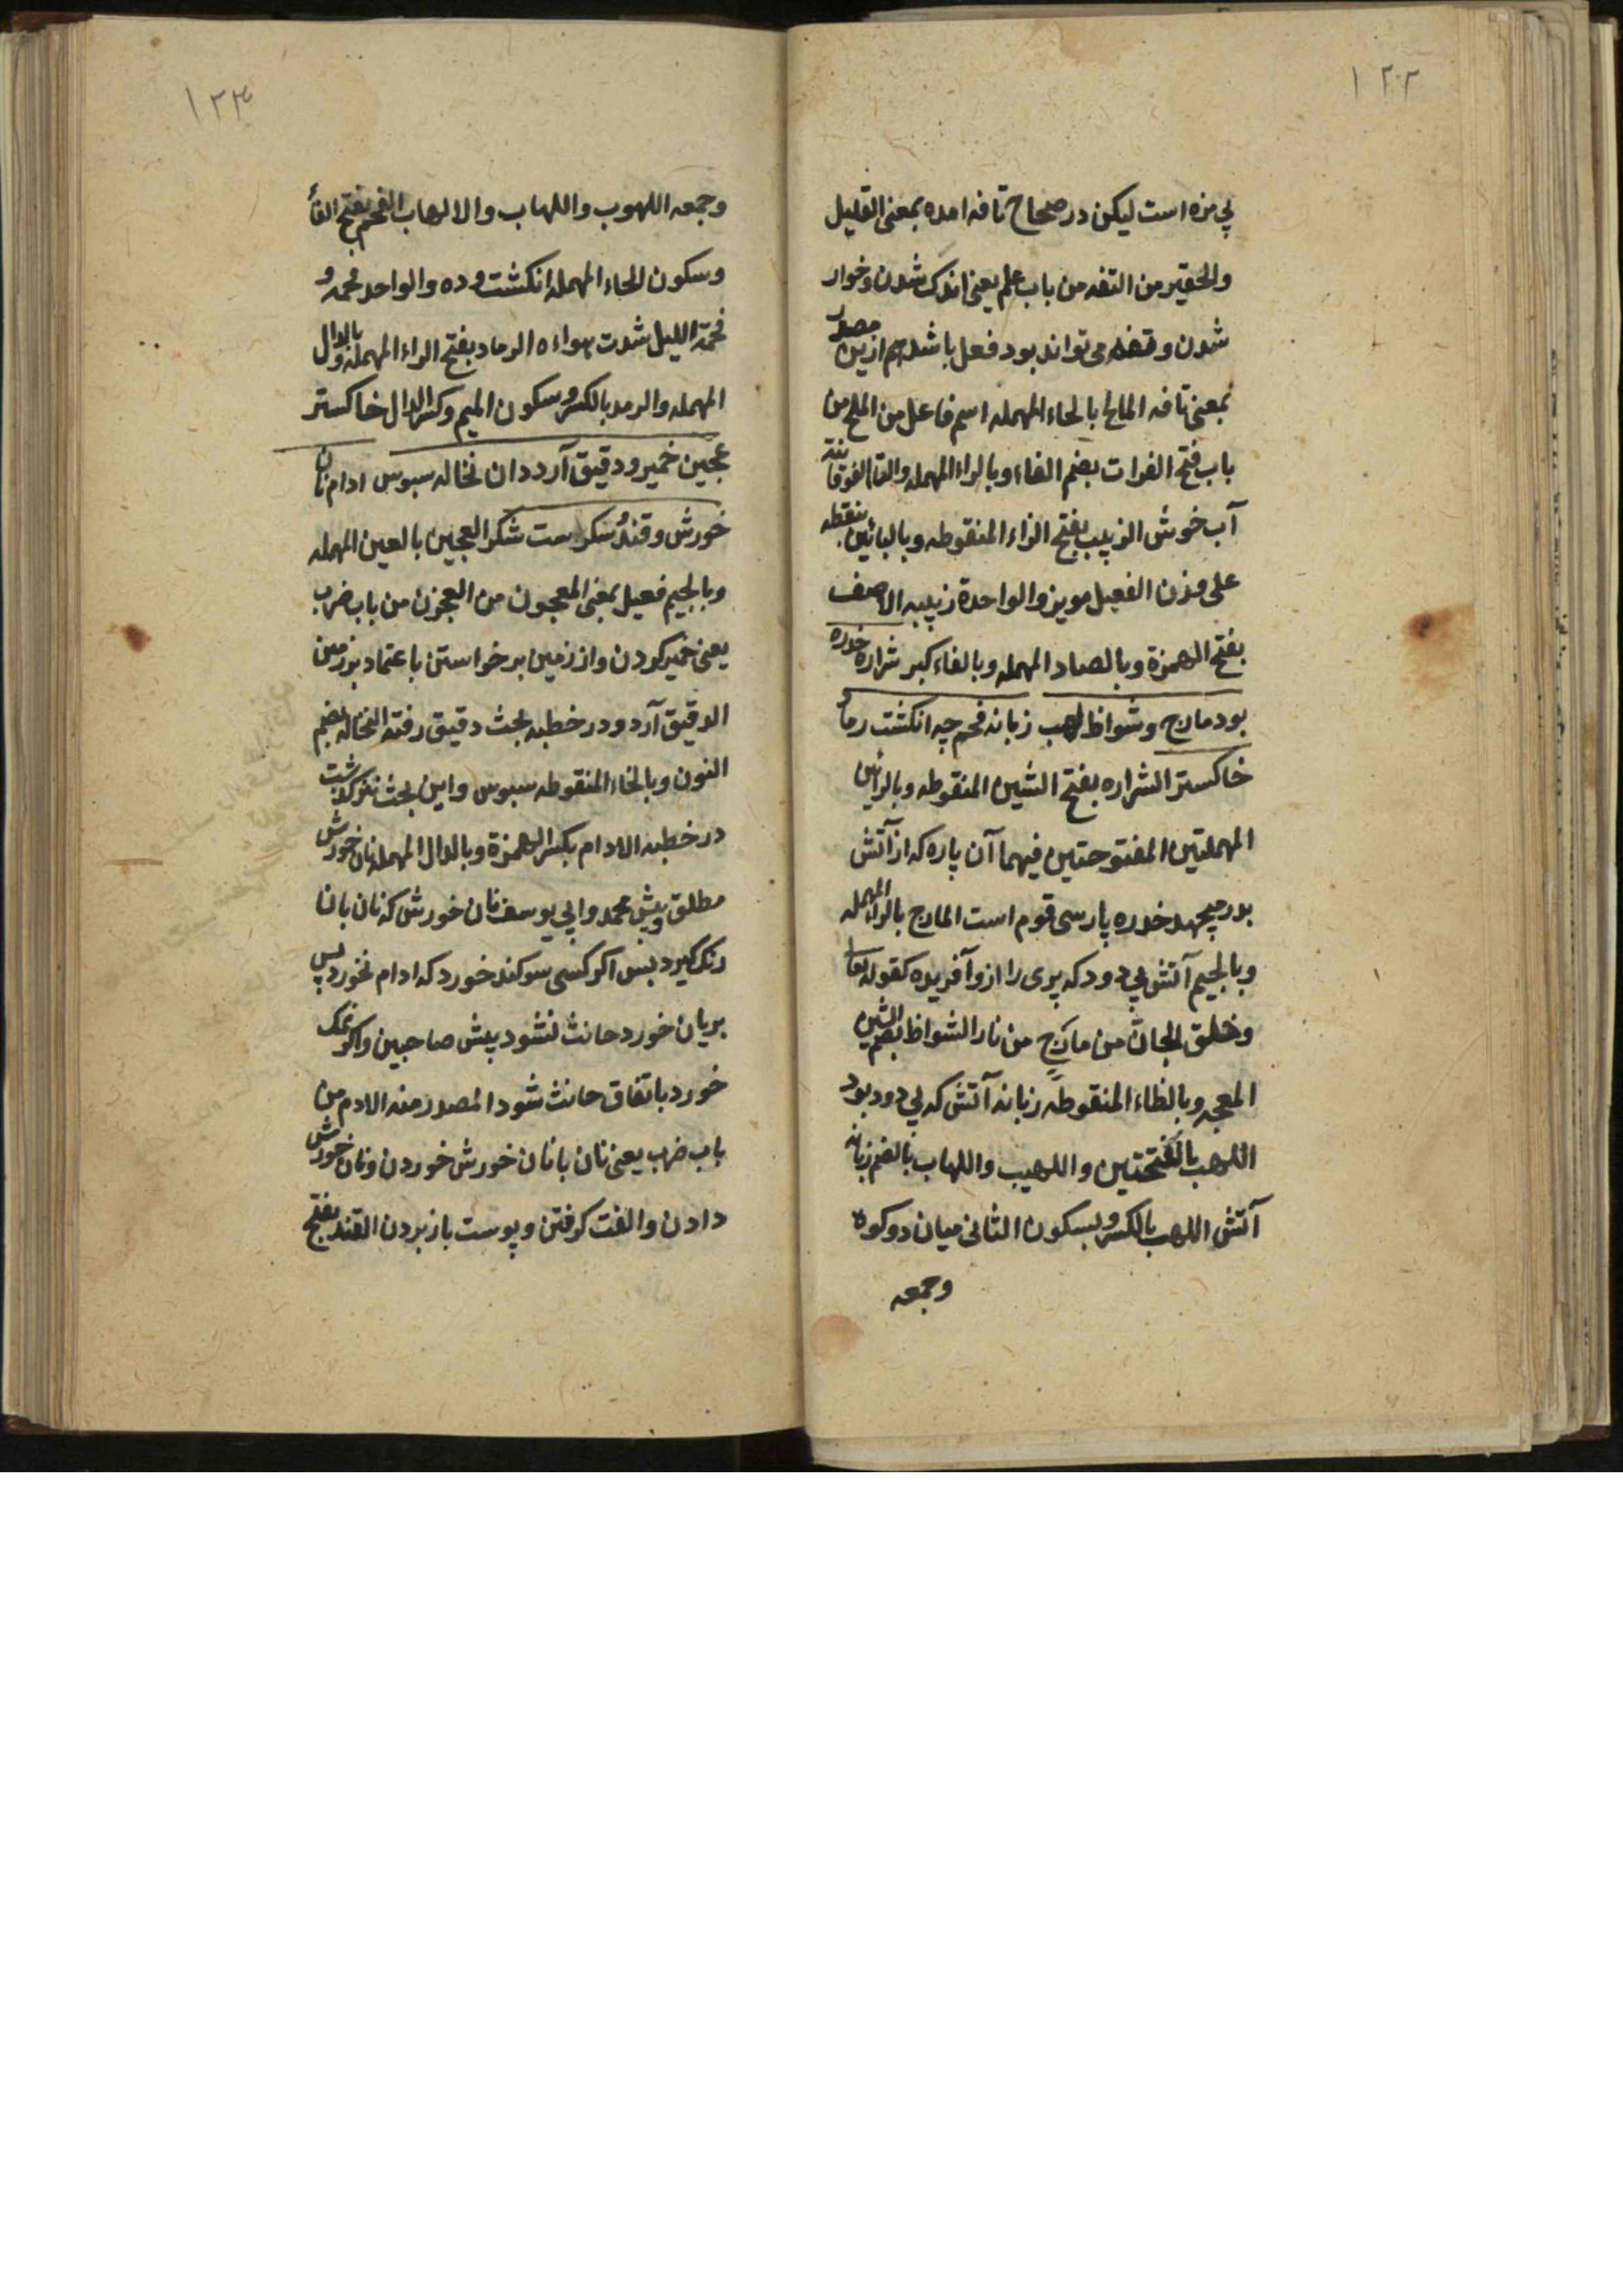 ١٢٢
بی مزه است لیکن در صحاح تافه امده بمعنی القلیل
والحقیر من التفه من باب علم یعنی اندک شدن و خوار
شدن و تفه می تواند بود فعل باشد هم ازین مصدر
بمعنی تافه المالح بالحاء المهمله اسم فاعل من الملح من
باب فتح الفرات بضم الفاء و بالراء المهمله والتاء الفوقانیة
آب خوش الزبیب بفتح الزاء المنقوطه و بالبائین بنقطه
علی وزن الفعیل مویز والواحدة زبیبه الاصف
بفتح الهمزة و بالصاد المهمله و بالفاء کبر شراره خدره
بود مارج و شواظ لهب زبانه فحم چه انکشت رماد
خاکستر الشراره بفتح الشین المنقوطه و بالرائین
المهملتین المفتوحتین فیهما آن پاره که از آتش
بدر میجهد خدره پارسی قوم است المارج بالراء المهمله
و بالجیم آتش بی دود که پری را ازو آفریده کقوله تعا
وخلق الجان من مارج من نار الشواظ بضم الشین
المعجمه و بالظاء المنقوطه زبانه آتش که بی دود بود
اللهب بالفتحتین و اللهیب و اللهاب بالضم زبانه
آتش اللهب بالکسر و بسکون الثانی میان دو کوه
وجمعه
١٢٣
وجمعه اللهوب و اللهاب و الالهاب الفحم بفتح الفأ
وسکون الحاء المهمله انکشت وده والواحد فحمه و
فحمة اللیل شدت سواده الرماد بفتح الراء المهمله و بالدال
المهمله والرمد بالکسر و سکون المیم و کسر الدال خاکستر
عجین خمیر و دقیق آرد دان نخاله سبوس ادام نان
خورش و قند سکر است شکر العجین بالعین المهمله
و بالجیم فعیل بمعنی المعجون من العجن من باب ضرب
یعنی خمیر کردن و از زمین بر خواستن باعتماد بر زمین
الدقیق آرد و در خطبه بحث دقیق رفته النخاله بضم
النون و بالخاء المنقوطه سبوس و این بحث نیز کذشت
در خطبه الادام بکسر الهمزة و بالدال المهمله نان خورش
مطلق و پیش محمد و ابی یوسف نان خورش که نان بانا
رنک کیرد پس اکر کسی سوکند خورد که ادام نخورد پس
بریان خورد حانث نشود پیش صاحبین و اکر نمک
خورد باتفاق حانث شود المصدر منه الادم من
باب ضرب یعنی نان با نان خورش خوردن و نان خورش
دادن و الفت کرفتن و پوست باز بردن القند بفتح